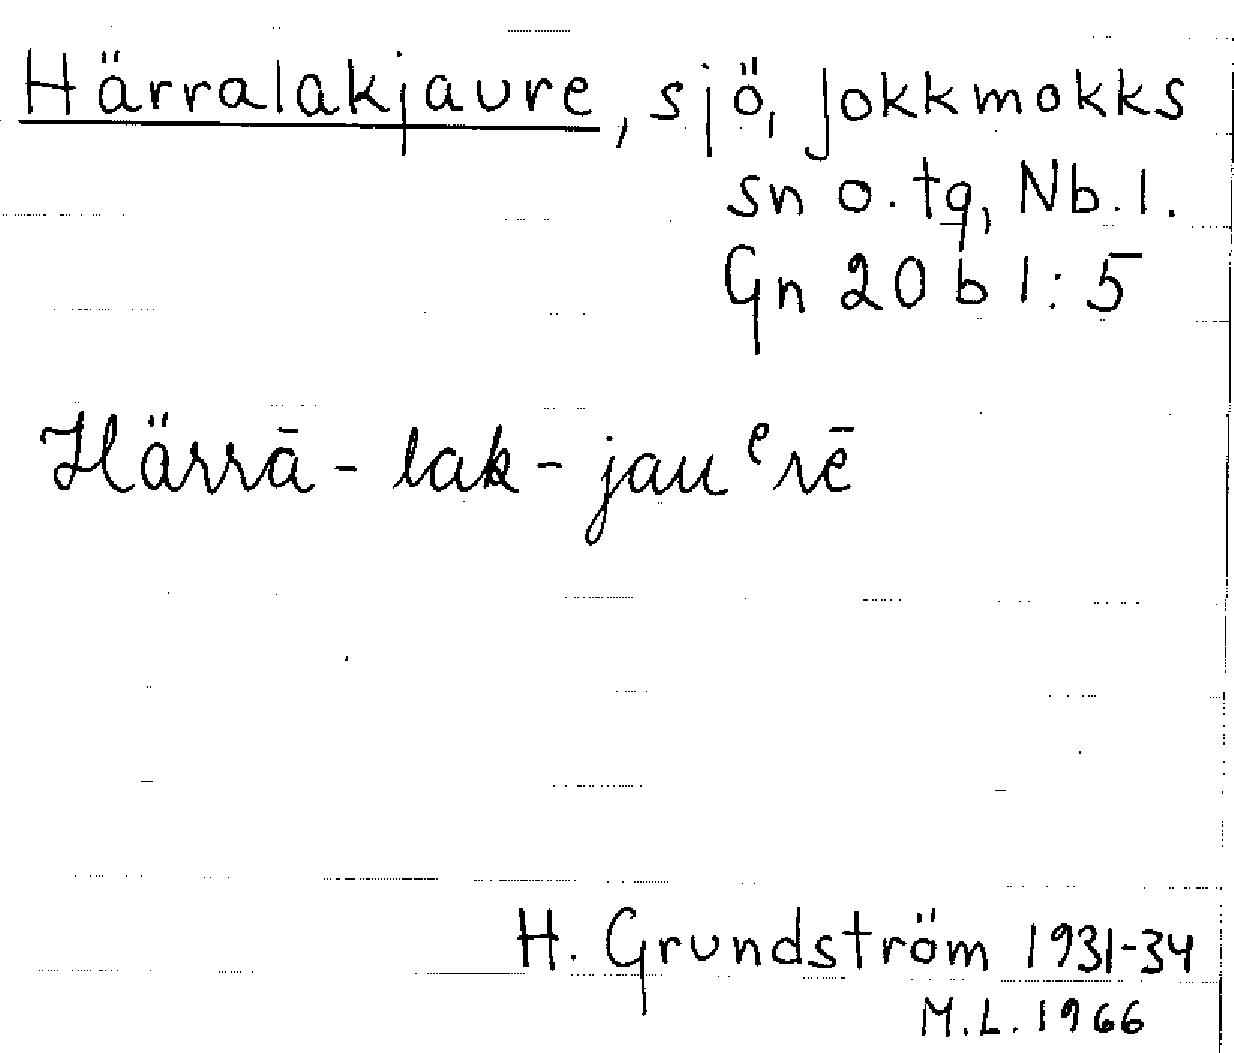 Härralakjaure, sjö, Jokkmokks
sn o. tg, Nb. l.
Gn 20 b 1:5
Härrā - lak - jauᵉrē
H. Grundström 1931-34
M.L. 1966